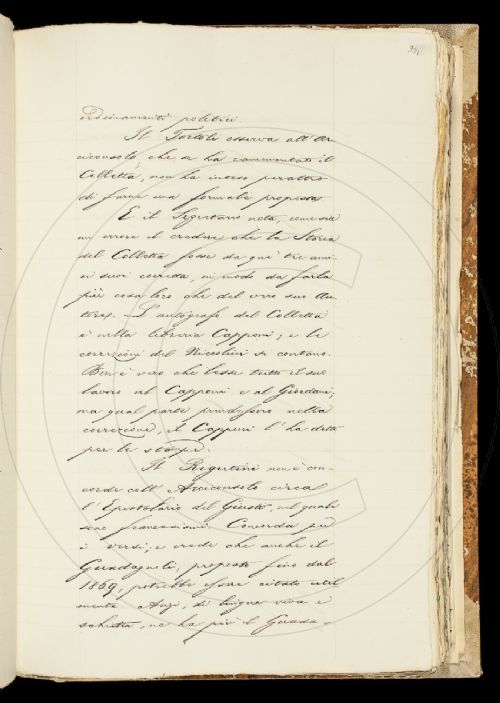 ordinamenti politici.
Il Tortoli osserva all'Ar-
ciconsolo, che se ha rammentato il
Colletta, non ha inteso peraltro
di farne una formale proposta.
E il Segretario nota, come sia
un errore il credere che la Storia
del Colletta fosse da que' tre ami-
ci suoi corretta, in modo da farla
più cosa loro che del vero suo Au-
tore. L'autografo del Colletta
è nella libreria Capponi; e le
correzioni del Niccolini si contano.
Ben è vero che lesse tutto il suo
lavoro al Capponi e al Giordani;
ma qual parte prendessero nella
correzione, il Capponi l'ha detto
per le stampe.
Il Rigutini non con-
corda coll' Arciconsolo circa
l'Epistolario del Giusti, nel quale
sono francesismi. Concorda per
i versi; e crede che anche il
Guadagnoli, proposto fino dal
1869, potrebbe esser citato util
mente. Anzi, di lingua viva e
schietta, ne ha più il Guada-